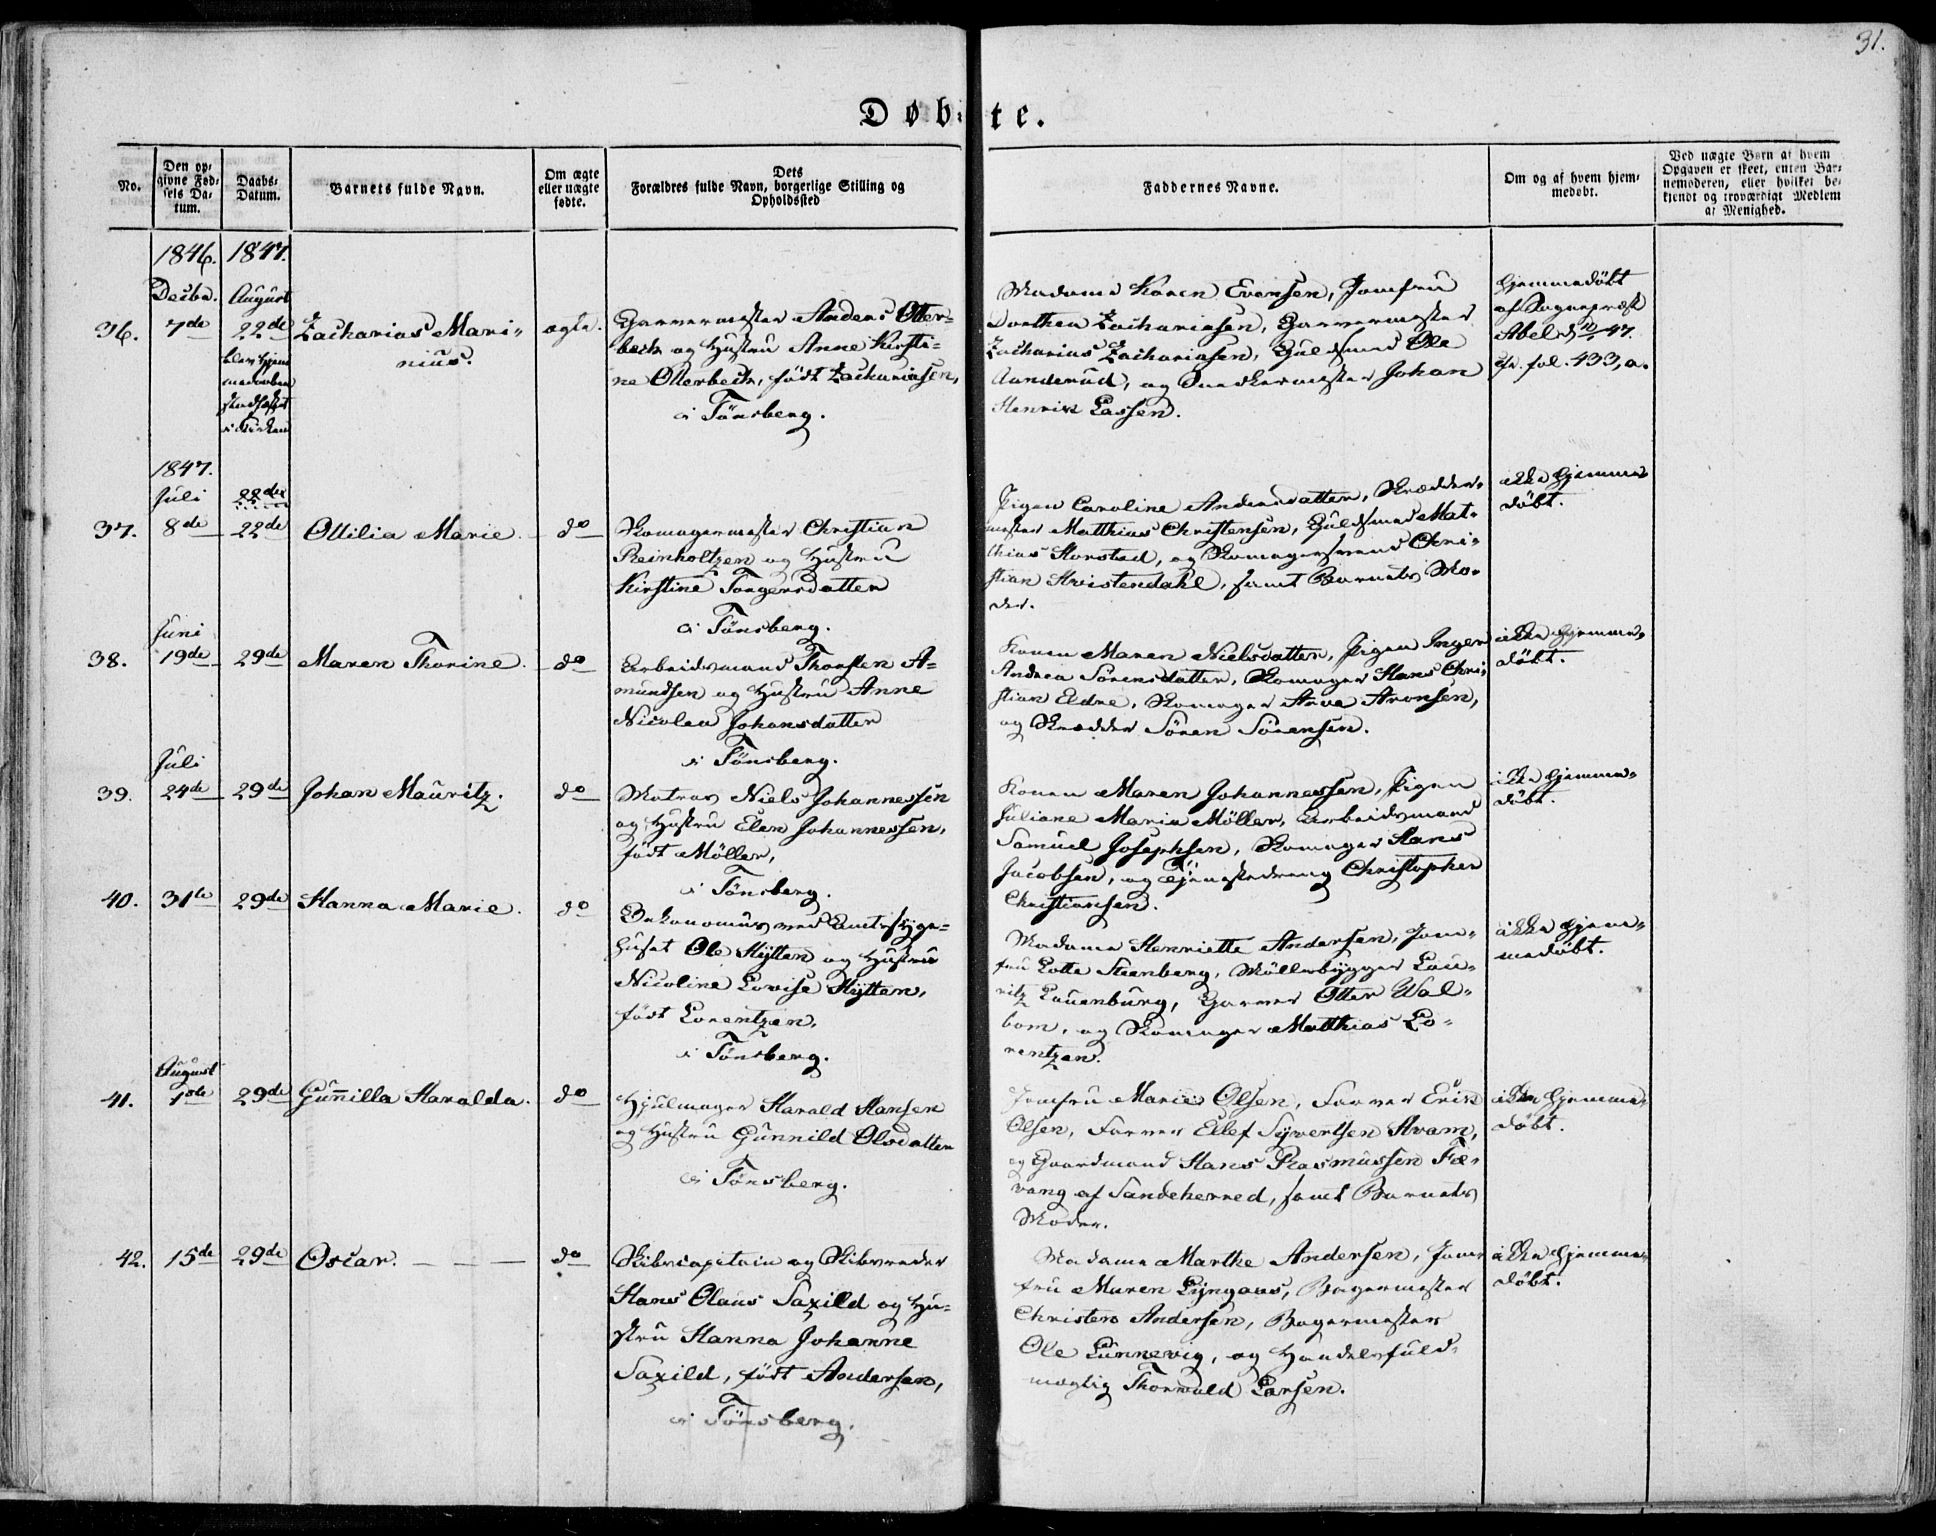 31.
Døbte.
No.
Den op-
givne Fød-
sels Da-
tum.
Daabs-
Datum.
Barnets fulde Navn.
Om ægte
eller uægte
fødte.
Dets
Forældres fulde Navn, borgerlige Stilling og
Opholdssted
Faddernes Navne.
Om og af hvem hjem-
medøbt.
Ved uægte Børn af hvem
Opgaven er skeet, enten Bar-
nemoderen, eller hvilket be-
kjendt og troværdigt Medlem
af Menighed.
1846. 1847.
Decbr. August
36. 7de 22de
blev hjem-
medaaben
stadfæstet
i Kirken
Zacharias Mari-
nius.
ægte.
Garvermester Anders Otter-
bech og Hustru Anne Kirsti-
ne Otterbech, født Zachariasen,
i Tönsberg.
Madame Karen Evensen, Jomfru
Dorthea Zachariasen, Garvermester
Zacharias Zachariasen, Guldsmed Ole
Aanderud, og Snedkermester Johan
Henrik Lassen.
Hjemmedöbt
af Sognepræst
Abel d. 47.
cfr. fol. 433, a.
1847.
Juli 22de
37. 8de 22de Ottilia Marie. do
Skomagermester Christian
Reinholtzen og Hustru
Kirstine Torgersdatter
i Tönsberg.
Pigen Caroline Andersdatter, Skrædder-
mester Matthias Christensen, Guldsmed Mat-
thias Horstad, og Skomagersvend Chri-
stian Hvistendahl, samt Barnets Mo-
der.
ikke hjemme-
döbt.
Juni
38. 19de 29de Maren Thorine. do
Arbeidsmand Thorsten A-
mundsen og Hustru Anne
Nicolea Johansdatter
i Tönsberg.
Konen Maren Nielsdatter, Pigen Inger
Andrea Sörensdatter, Skomager Hans Chri-
stian Eldre, Skomager Arve Aronsen,
og Skrædder Sören Sörensen.
ikke hjemme-
döbt.
Juli
39. 24de 29de Johan Mauritz. do
Matros Niels Johannessen
og Hustru Elen Johannessen,
född Möller,
i Tönsberg.
Konen Maren Johannessen, Pigen
Juliane Maria Möller, Arbeidsmand
Samuel Josephsen, Skomager Hans
Jacobsen, og Tjenestedreng Christopher
Christiansen.
ikke hjemme-
döbt.
40. 31te 29de Hanna Marie. do
Oekonomus ved Amtssyge-
huset Ole Hytten og Hustru
Nicoline Lovise Hytten,
född Lorentzen,
i Tönsberg.
Madame Henriette Andersen, Jom-
fru Lotte Steenberg, Möllebygger Lau-
ritz Lauenburg, Garver Otter Wal-
bom, og Skomager Matthias Lo-
rentzen.
ikke hjem-
medöbt.
August
41. 1ste 29de Gunilla Haralda. do
Hjulmager Harald Hansen
og Hustru Gunnild Olsdatter
i Tönsberg.
Jomfru Marie Olsen, Farver Erik
Olsen, Farver Ellef Syvertsen Hvam,
og Gaardmand Hans Rasmussen Fe-
vang af Sandeherred, samt Barnets
Moder.
ikke hjemme-
döbt.
42. 15de 29de Oscar. do
Skibscapitain og Skibsreder
Hans Olaus Saxild og Hu-
stru Hanna Johanne
Saxild, född Andersen,
i Tönsberg.
Madame Marthe Andersen, Jom-
fru Maren Lyngaas, Bagermester
Christen Andersen, Bagermester
Ole Lunnevig, og Handelsfuld-
mægtig Thorvald Larsen.
ikke hjemme-
döbt.